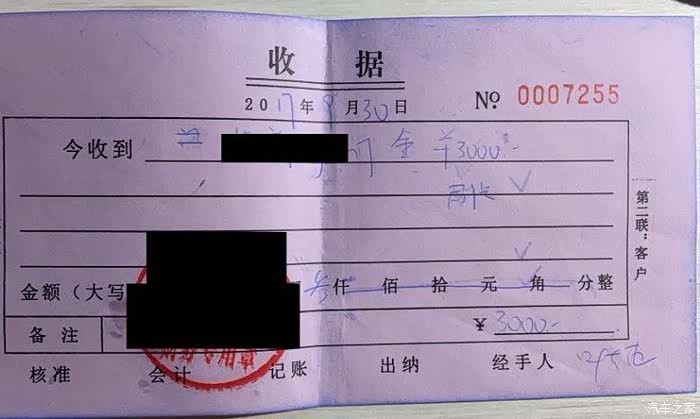 收 据
2017年8月30日
№ 0007255
今收到 金 ¥3000.-
刷卡
第二联：客户
金额（大写 叁仟 佰 拾 元 角 分整
备注 ¥3000.-
核准 会计 记账 出纳 经手人
汽车之家